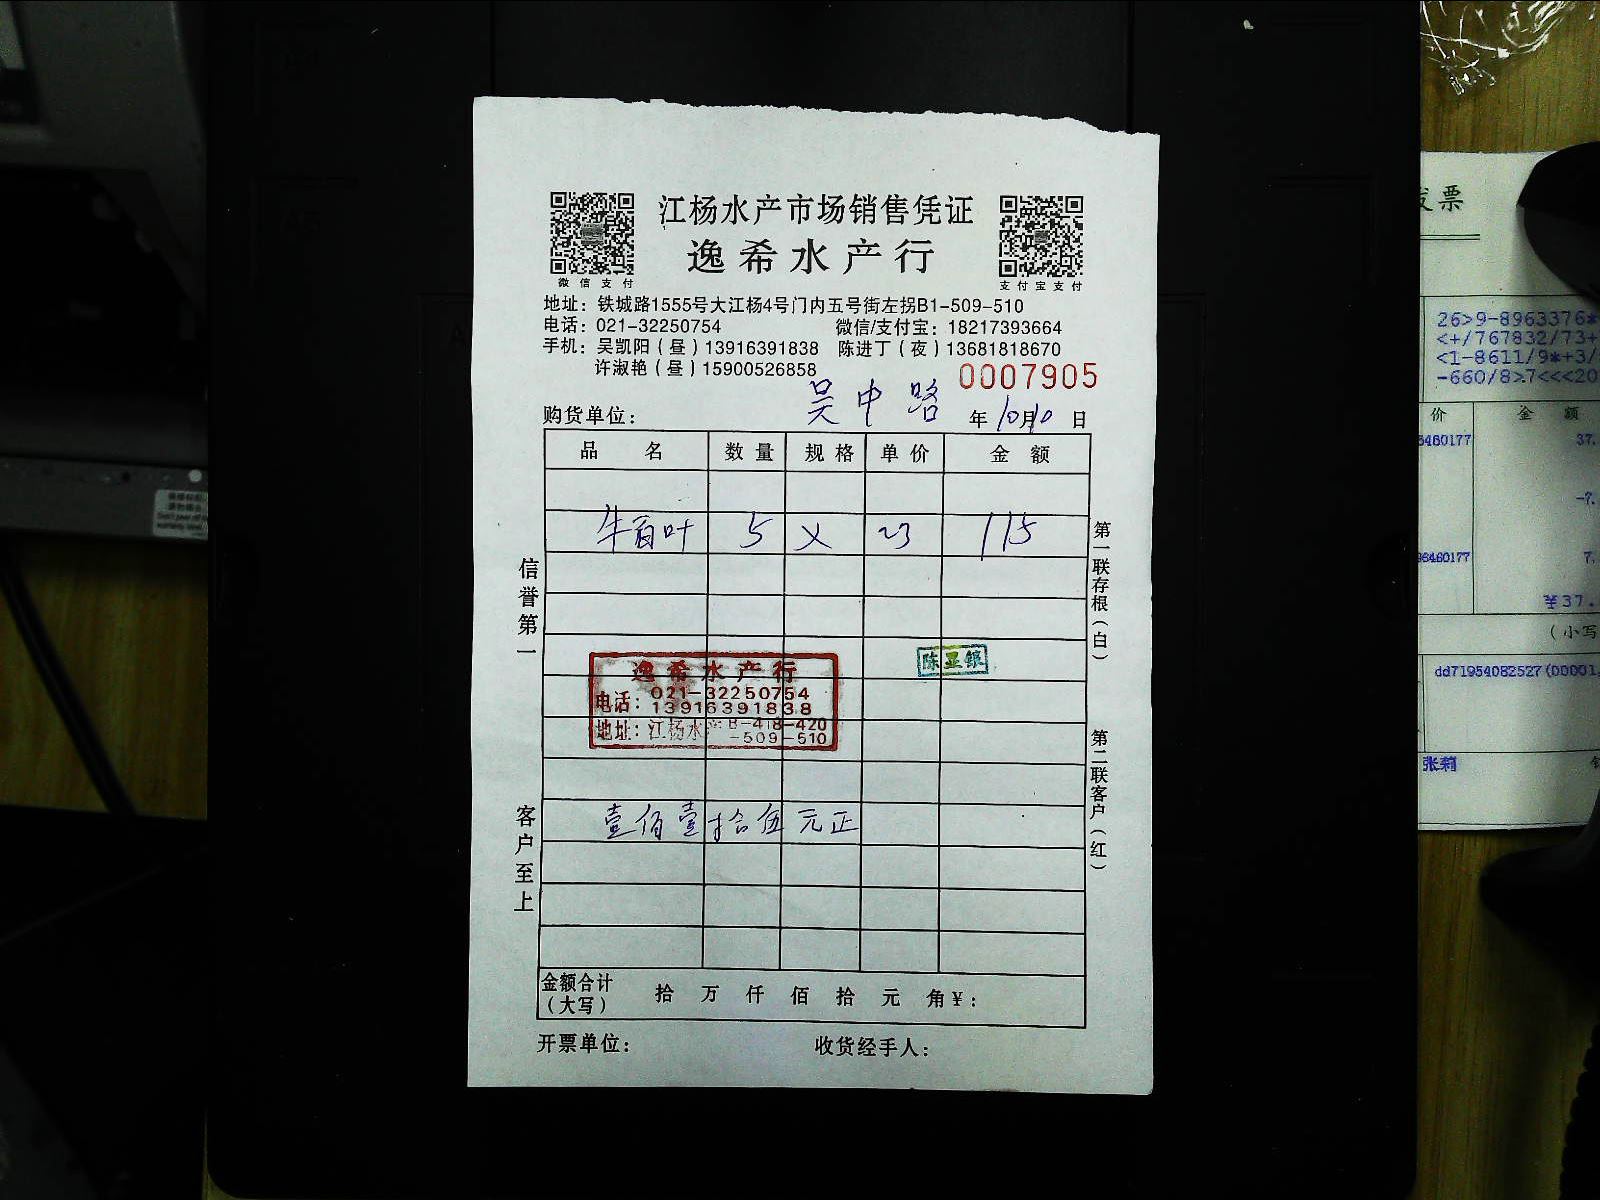 江杨水产市场销售凭证
逸希水产行
微信支付
支付宝支付
地址：铁城路1555号大江杨4号门内五号街左拐B1-509-510
电话：021-32250754 微信/支付宝：18217393664
手机：吴凯阳（昼）13916391838 陈进丁（夜）13681818670
许淑艳（昼）15900526858
0007905
购货单位： 吴中路 年10月10日
品名 数量 规格 单价 金额
牛百叶 5 X 23 115
信誉第一
客户至上
第一联存根（白）
第二联客户（红）
陈亚银
逸希水产行
电话：021-32250754
13916391838
地址：江杨水产B-418-420
-509-510
壹佰壹拾伍元正
金额合计
（大写）
拾万仟佰拾元角¥：
开票单位： 收货经手人：
发票
26>9-8963376*
<+/767832/73+
<1-8611/9*+3/
-660/8>7<<<20
价 金额
6460177 37.
-7.
6460177 7.
¥37.
（小写
dd71954082527(00001
张莉